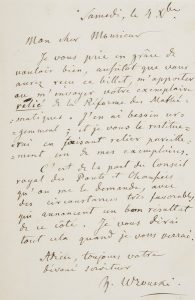 Samedi, le 4 Xbre
Mon cher Monsieur
Je vous prie en grâce de
vouloir bien, aussitôt que vous
aurez reçu ce billet, m'apporter
ou m'envoyer votre exemplaire
relié de la Réforme des Mathé-
matiques. J'en ai besoin ur-
gemment; et je vous le restitue-
rai en faisant relier pareille-
ment un de mes exemplaires.
C'est de la part du Conseil
royal des Ponts et Chaussées
qu'on me le demande, avec
des circonstances très favorables,
qui annoncent un bon résultat
de ce côté. Je vous dirai
tout cela quand je vous verrai.
Adieu, toujours votre
dévoué serviteur
H. Wronski